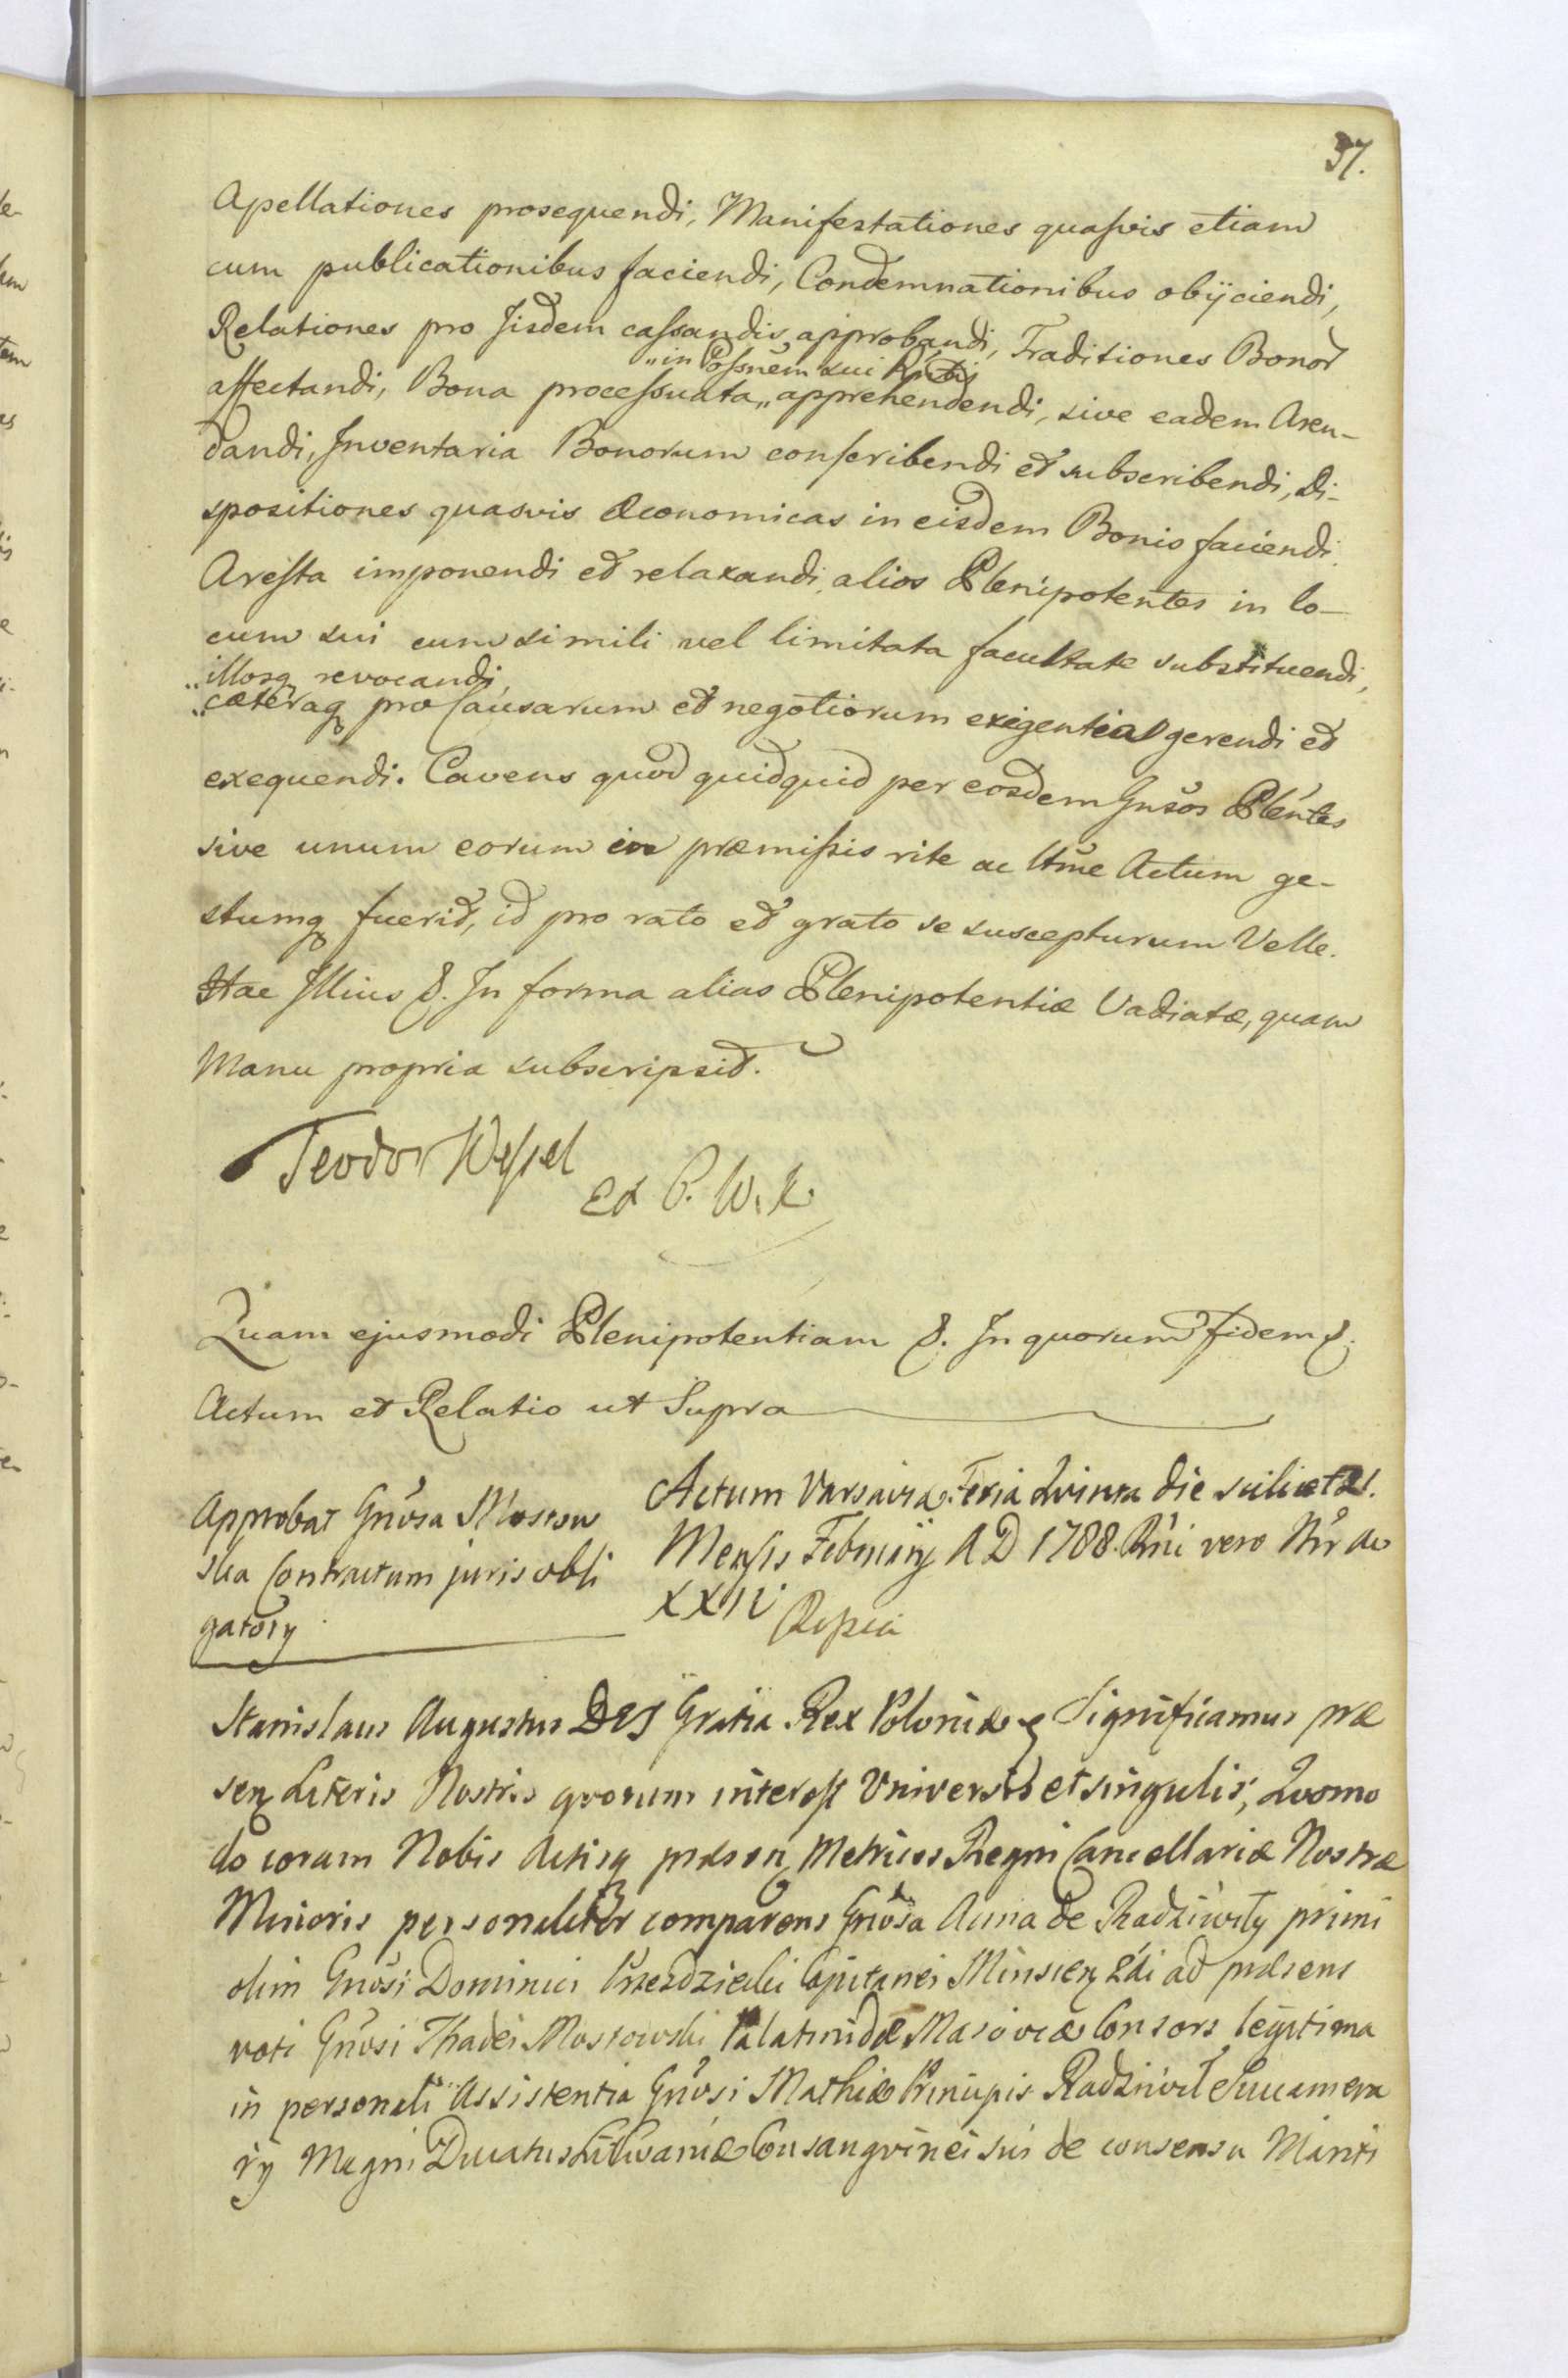 37.
Apellationes prosequendi, Manifestationes quasvis etiam
cum publicationibus faciendi, Condemnationibus obijciendi,
Relationes pro Iisdem cassandis, approbandi, Traditiones Bonor
„in Possnem sui Rptbs
affectandi, Bona processuata „ apprehendendi, sive eadem Aren-
dandi, Inventaria Bonorum conscribendi et subscribendi, Di-
spositiones quasvis Œconomicas in eisdem Bonis faciendi.
Aresta imponendi et relaxandi, alios Plenipotentes in lo-
cum sui cum simili vel limitata facultate substituendi,
„illosq revocandi,
„cæteraq pro Causarum et negotiorum exigentia gerendi et
exequendi. Cavens quod quidquid per eosdem Gnsos Plentes
sive unum eorum in præmissis rite ac ltme Actum ge-
stumq fuerit, id pro rato et grato se suscepturum Velle.
Hac Illius &. In forma alias Plenipotentiæ Vadiatæ, quam
Manu propria subscripsit.
Teodor Wessel
P. W. K.
Quam ejusmodi Plenipotentiam &. In quorum Fidem &.
Actum et Relatio ut Supra
Approbat Gnosa Mostow
ska Contractum juris obli
gatory
Actum Varsaviæ Feria Quinta die scilicet 21.
Mensis Februarij A D 1788. Rni vero Nri Ao
XXIV
Stanislaus Augustus DEI Gratia Rex Poloniæ & Significamus præ
sen Literis Nostris quorum interest Universis et singulis, Quomo
do coram Nobis Actisq præsen Metrices Regni Cancellariæ Nostræ
Minoris personaliter comparens Gnosa Anna de Radziwiły primi
olim Gnosi Dominici Przezdziecki Capitanei Minscen 2di ad præsens
voti Gnosi Thadei Mostowski Palatinidæ Masoviæ Consors legitima
in personali Assistentia Gnosi Mathiæ Principis Radziwił Succamera
rij Magni Ducatus Lithvaniæ Consangvinei sui de consensu Mariti